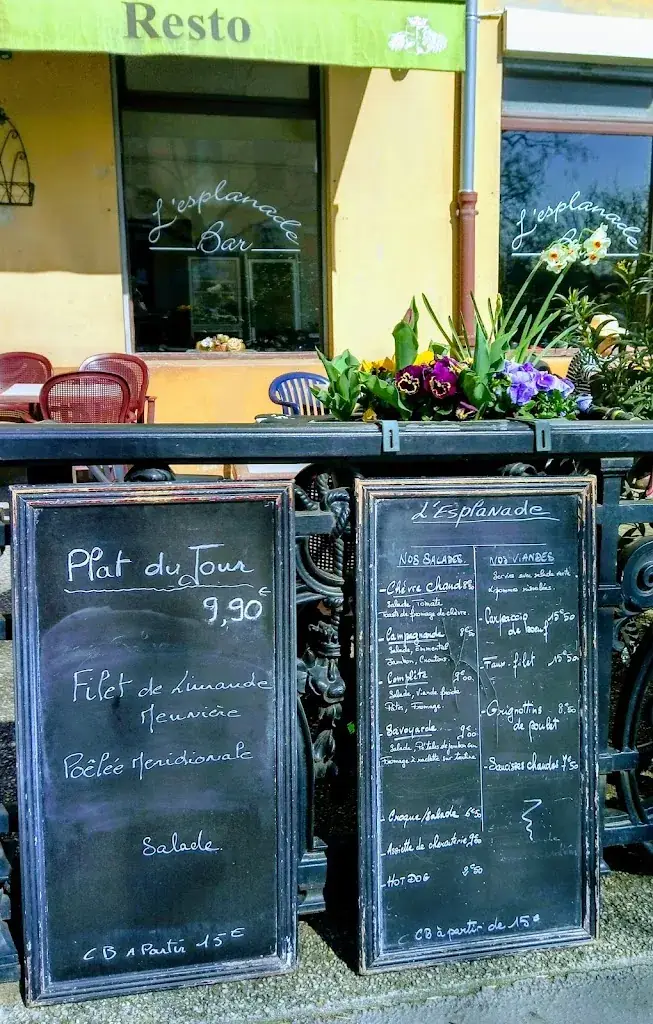 Resto
L'esplanade
Bar
L'esplanade
Bar
Plat du Jour
9,90€
Filet de Limande
Meunière
Poêlée Meridionale
Salade
CB A Partir 15€
L'Esplanade
Nos Salades
Chèvre chaud
Salade, Tomate
Toasts de fromage de chèvre.
Campagnarde
Salade, Emmental
Jambon, Croutons.
Complète 9€00
Salade, Viande froide
Pâtes, Fromage.
Savoyarde 9€00
Fromage à raclette sur tartine
Croque/salade 6€50
Assiette de charcuterie
Hot Dog
Nos Viandes
Servies avec salade verte
Carpaccio 15€50
de boeuf
Faux-filet 15€50
Grignottins 8,50
de poulet
Saucisses chaudes 7€50
CB à partir de 15€